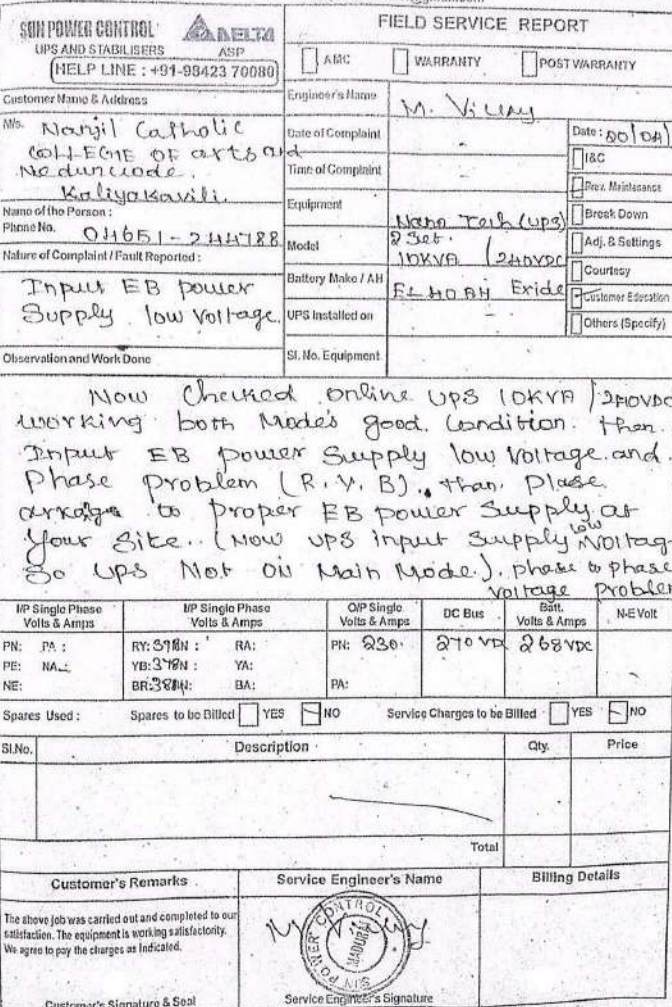 SUN POWER CONTROL
DELTA
UPS AND STABILISERS
ASP
HELP LINE : +91-98423 70080
FIELD SERVICE REPORT
AMC
WARRANTY
POST WARRANTY
Customer Name & Address
M/s. Nanjil Catholic
COLLEGE OF arts and
Neduncode.
Kaliyakavili.
Name of the Person :
Phone No. 04651-244788
Nature of Complaint / Fault Reported :
Input EB power
Supply low Voltage.
Observation and Work Done
Engineer's Name
Date of Complaint
Time of Complaint
Equipment
Nano Tech (UPS)
Model
2 Set.
10KVA / 240VDC
Battery Make / AH
Exide
UPS Installed on
Sl. No. Equipment
Date :
I&C
Prev. Maintenance
Break Down
Adj. & Settings
Courtesy
Customer Education
Others (Specify)
Now Checked online UPS 10KVA / 240VDC
working both Mode's good. Condition. then.
Input EB power Supply low Voltage. and.
Phase Problem (R.Y.B).. than. Plase
to Proper EB power Supply at
Your Site.. (Now UPS input Supply low Voltag
So UPS Not ON Main Mode.). phase to phase
voltage Problem
I/P Single Phase
Volts & Amps
I/P Single Phase
Volts & Amps
O/P Single
Volts & Amps
DC Bus
Batt.
Volts & Amps
N-E Volt
PN: PA :
RY: RA:
PN: 230.
270 VD
268 VDC
PE: NA
YB: YA:
NE:
BR: BA:
PA:
Spares Used :
Spares to be Billed
YES
NO
Service Charges to be Billed
YES
NO
Sl.No.
Description
Qty.
Price
Total
Customer's Remarks
Service Engineer's Name
Billing Details
The above job was carried out and completed to our
satisfaction. The equipment is working satisfactorily.
We agree to pay the charges as indicated.
SUN POWER CONTROL
MADURAI
Customer's Signature & Seal
Service Engineer's Signature